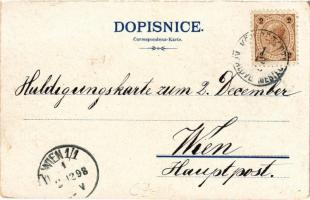 DOPISNICE.
Correspondenz-Karte.
Huldigungskarte zum 2. December
Wien
Hauptpost.
WIEN 1/1
1
12 98
V